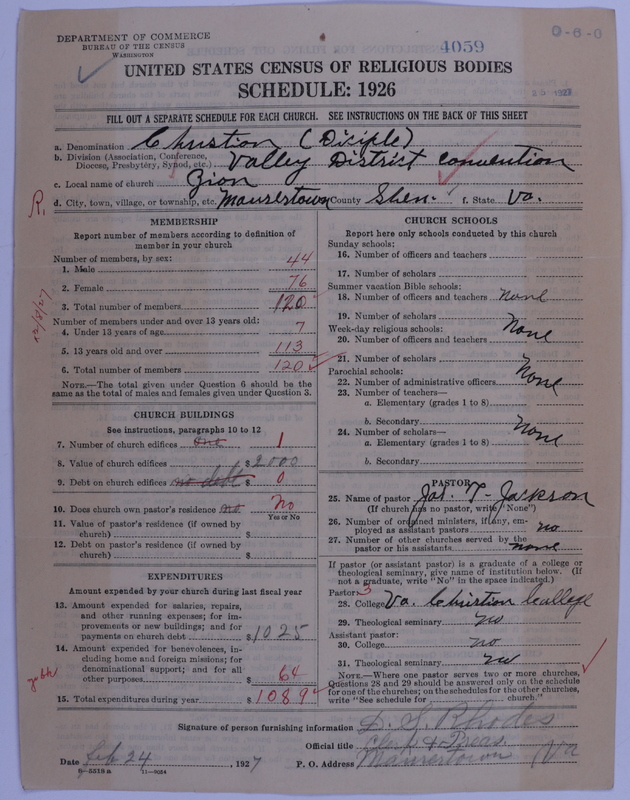 DEPARTMENT OF COMMERCE
BUREAU OF THE CENSUS
WASHINGTON
4059
0-6-0
UNITED STATES CENSUS OF RELIGIOUS BODIES
SCHEDULE: 1926
FILL OUT A SEPARATE SCHEDULE FOR EACH CHURCH. SEE INSTRUCTIONS ON THE BACK OF THIS SHEET
a. Denomination Christian (Diciple)
b. Division (Association, Conference, Diocese, Presbytery, Synod, etc.) Valley District Convention
c. Local name of church Zion
d. City, town, village, or township, etc. Maurertown County Shen. f. State Va.
R.
12/8/27
MEMBERSHIP
Report number of members according to definition of
member in your church
Number of members, by sex:
1. Male 44
2. Female 76
3. Total number of members 120
Number of members under and over 13 years old:
4. Under 13 years of age 7
5. 13 years old and over 113
6. Total number of members 120
NOTE.—The total given under Question 6 should be the
same as the total of males and females given under Question 3.
CHURCH BUILDINGS
See instructions, paragraphs 10 to 12
7. Number of church edifices one 1
8. Value of church edifices $ 2000
9. Debt on church edifices no debt $ 0
10. Does church own pastor's residence no No
Yes or No
11. Value of pastor's residence (if owned by
church) $
12. Debt on pastor's residence (if owned by
church) $
EXPENDITURES
Amount expended by your church during last fiscal year
13. Amount expended for salaries, repairs,
and other running expenses; for im-
provements or new buildings; and for
payments on church debt $ 1025
14. Amount expended for benevolences, in-
cluding home and foreign missions; for
denominational support; and for all
other purposes $ 64
15. Total expenditures during year $ 1089
CHURCH SCHOOLS
Report here only schools conducted by this church
Sunday schools:
16. Number of officers and teachers
17. Number of scholars
Summer vacation Bible schools:
18. Number of officers and teachers None
19. Number of scholars
Week-day religious schools: None
20. Number of officers and teachers
21. Number of scholars
Parochial schools: None
22. Number of administrative officers
23. Number of teachers—
a. Elementary (grades 1 to 8)
b. Secondary
24. Number of scholars— None
a. Elementary (grades 1 to 8)
b. Secondary
PASTOR
25. Name of pastor Jas. T. Jackson
(If church has no pastor, write "None")
26. Number of ordained ministers, if any, em-
ployed as assistant pastors no
27. Number of other churches served by the
pastor or his assistants none
If pastor (or assistant pastor) is a graduate of a college or
theological seminary, give name of institution below. (If
not a graduate, write "No" in the space indicated.)
Pastor: 3
28. College Va. Christian College
29. Theological seminary no
Assistant pastor:
30. College no
31. Theological seminary no
NOTE.—Where one pastor serves two or more churches,
Questions 28 and 29 should be answered only on the schedule
for one of the churches; on the schedules for the other churches,
write "See schedule for church."
Signature of person furnishing information D. F. Rhodes
Official title Clerk & Treas.
Date Feb 24, 1927 P. O. Address Maurertown Va
8—5518 a 11—9054